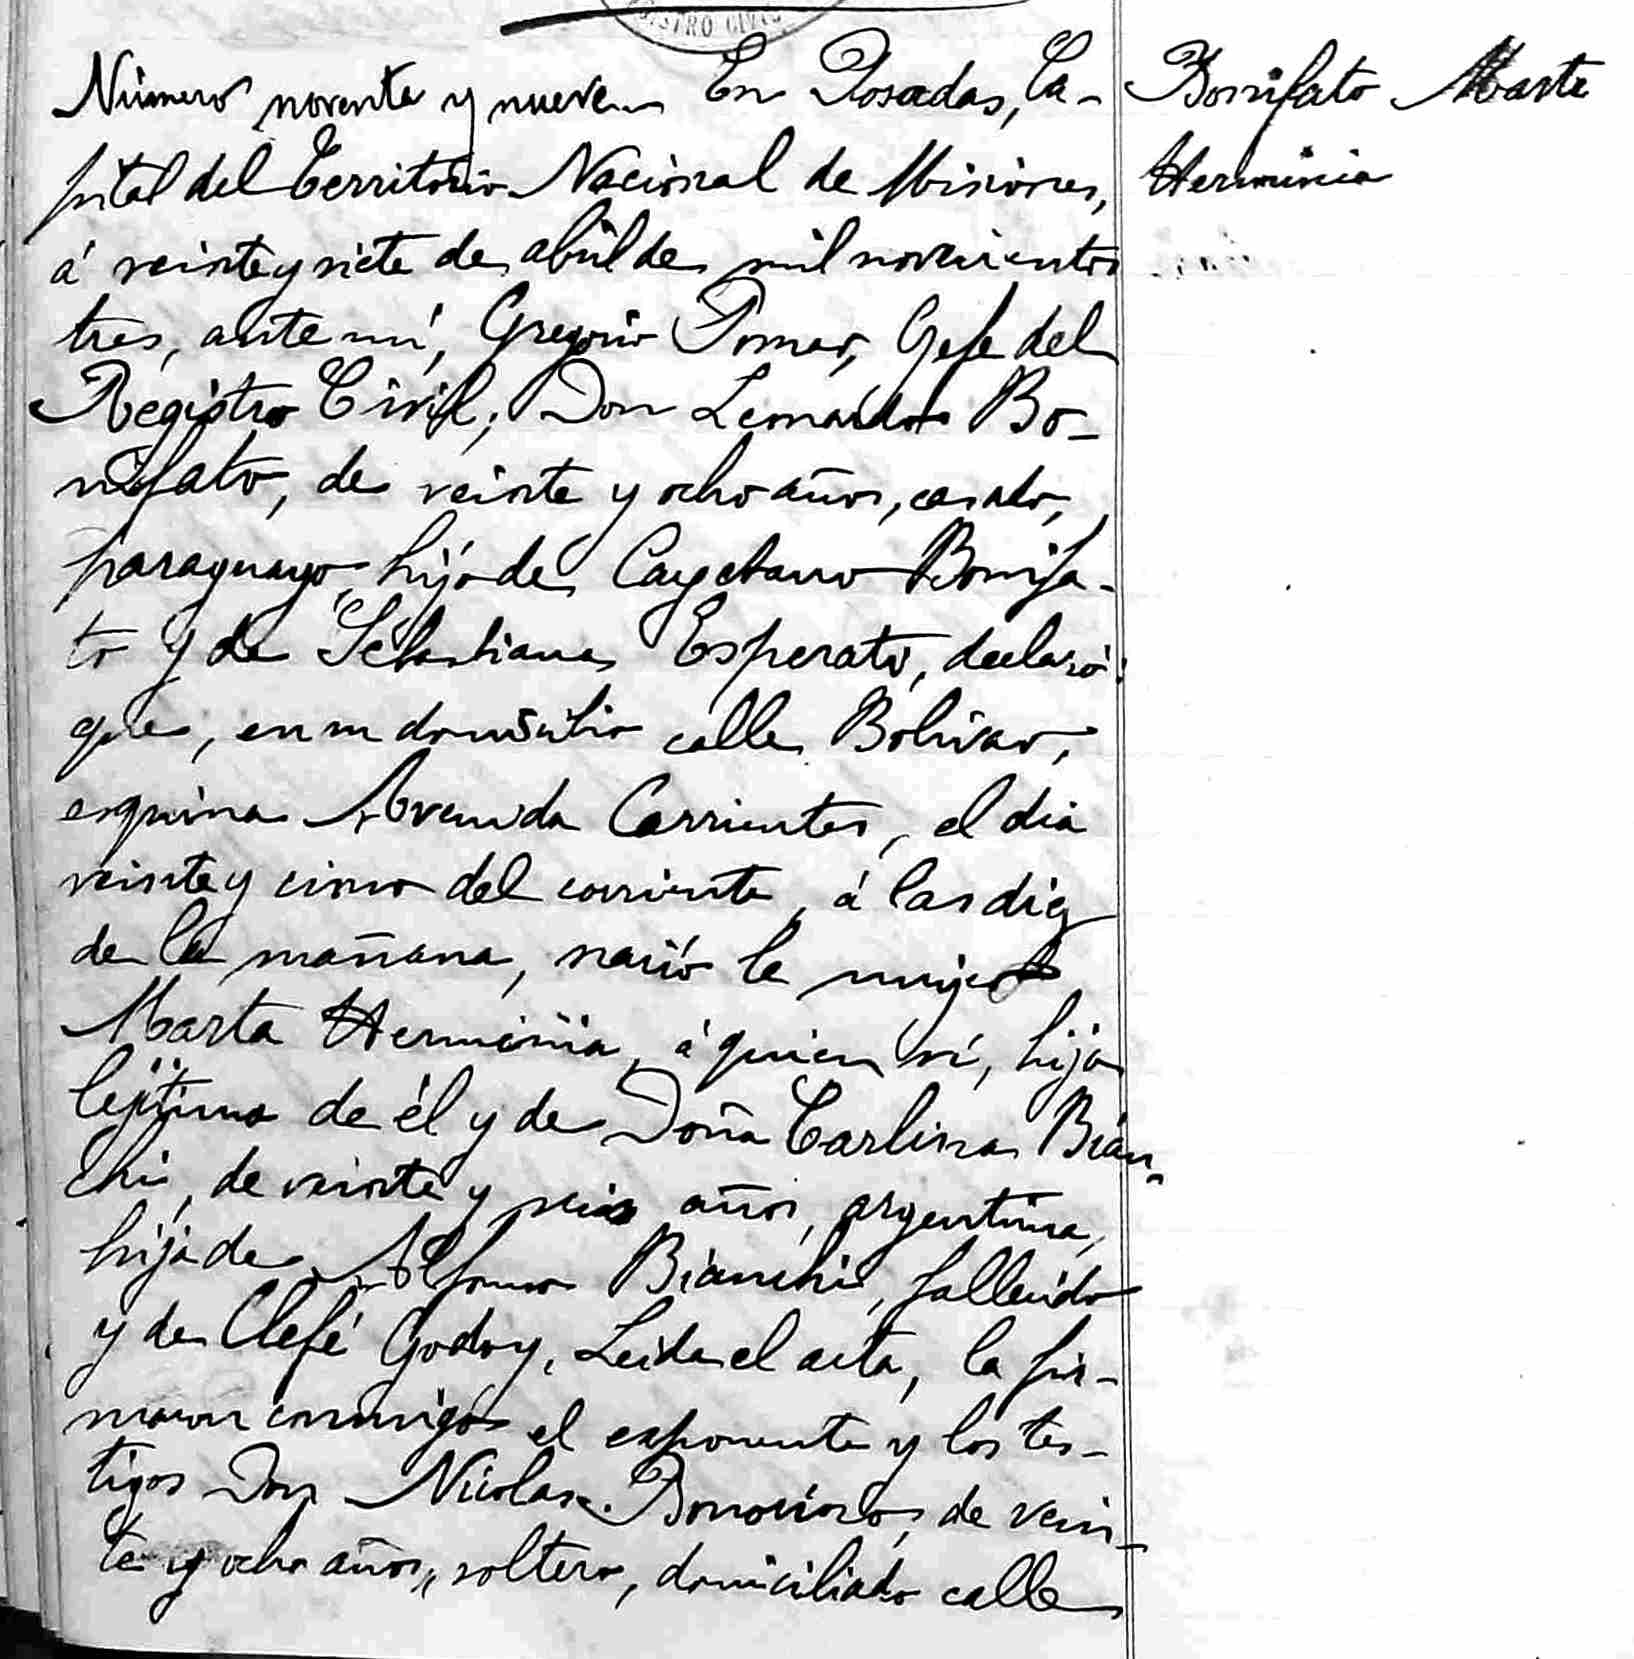 Número noventa y nueve En Posadas, Ca-
pital del Territorio Nacional de Misiones,
á veinte y siete de abril de mil novecientos
tres, ante mí, Gregorio Pomar, Gefe del
Registro Civil; Don Leonardo Bo-
nifato, de veinte y ocho años, casado,
paraguayo, hijo de Cayetano Bonifa-
to y de Sebastiana Esperati, declaró:
que, en su domicilio calle Bolivar,
esquina Avenida Corrientes, el dia
veinte y cinco del corriente, á las diez
de la mañana, nació la mujer
Marta Herminia, á quien ví, hija
lejítima de él y de Doña Carlina Bian-
chi, de veinte y seis años, argentina,
hija de Alfonso Bianchi, fallecido
y de Clefé Godoy. Leida el acta, la fir-
maron conmigo el exponente y los tes-
tigos Don Nicolas de vein-
te y ocho años, soltero, domiciliado calle
Bonifato Marta
Herminia